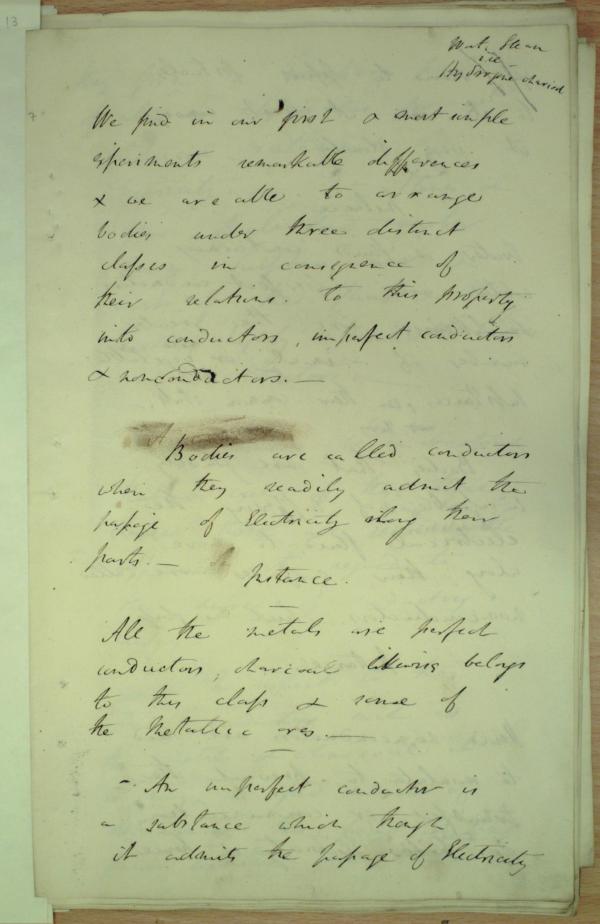 13
Water Steam
ice
Hydrogene charcoal
We find in our first & most simple
experiments remarkable differences
& we are able to arrange
bodies under three distinct
classes in consequence of
their relations to this property
into conductors, imperfect conductors
& nonconductors.—
Bodies are called conductors
when they readily admit the
passage of Electricity along their
parts.— Instance.
All the metals are perfect
conductors, charcoal likewise belongs
to this class & some of
the Metallic ores.—
- An imperfect conductor is
a substance which though
it admits the passage of Electricity